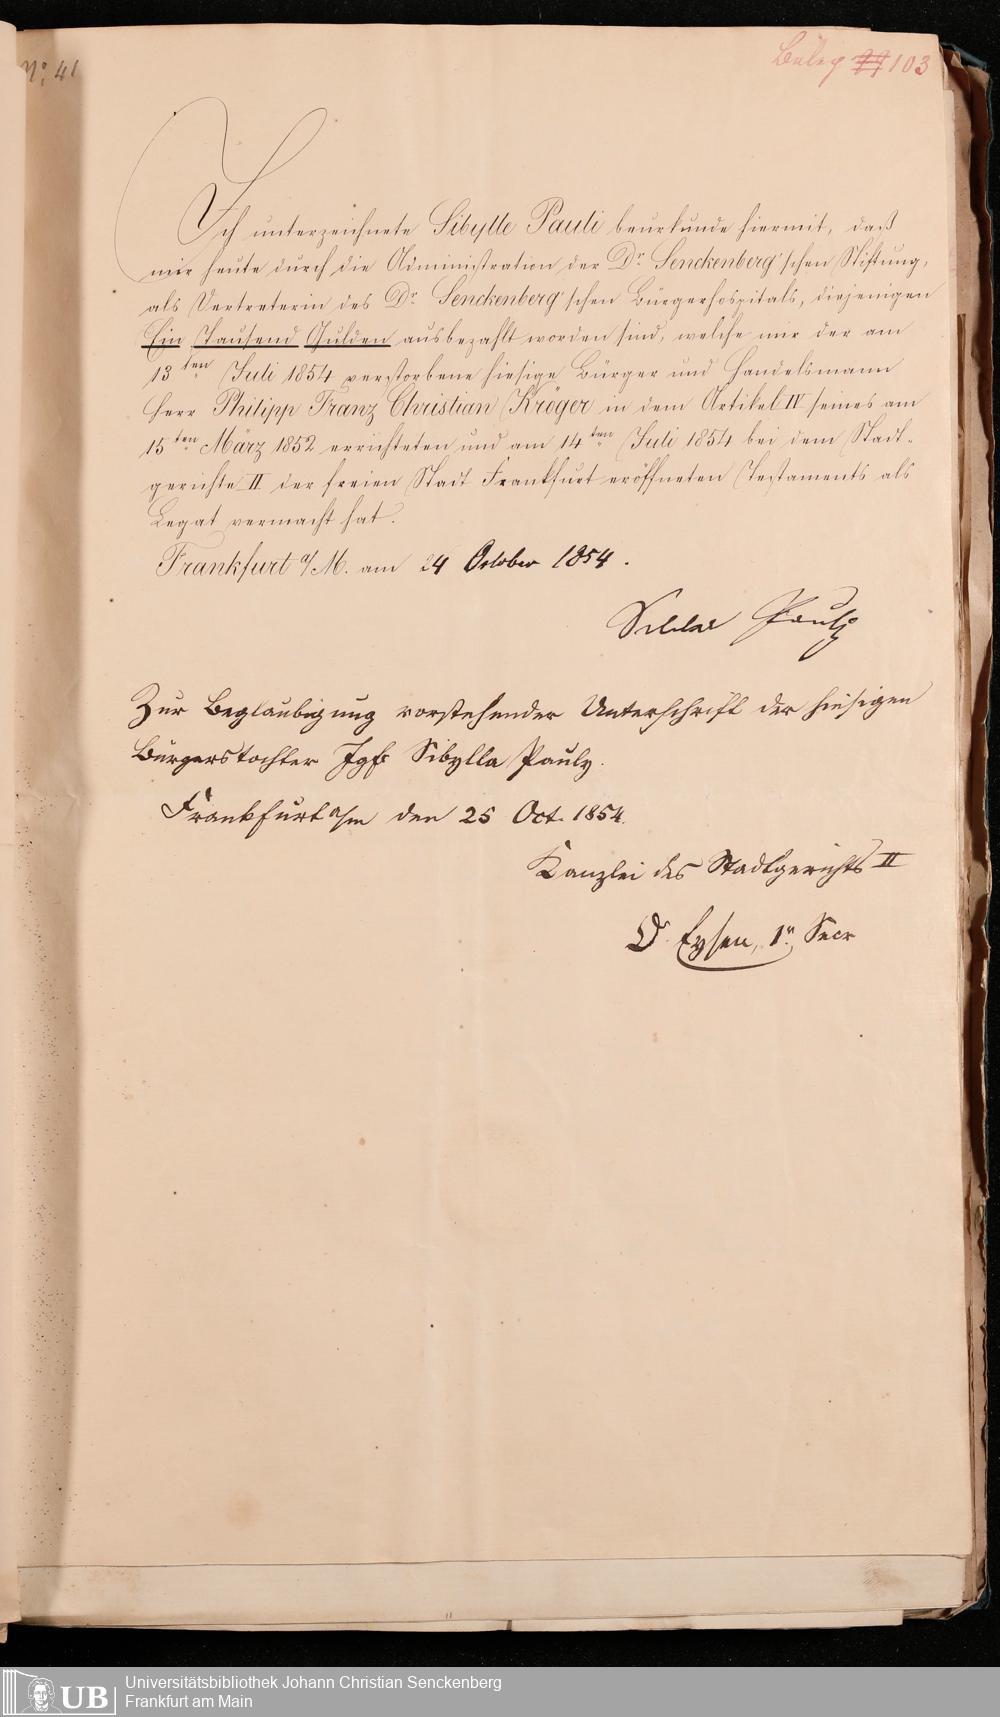 No. 41
Beleg 77 103
Ich unterzeichnete Sibylle Pauli beurkunde hiermit, daß
mir heute durch die Administration der Dr. Senckenberg'schen Stiftung,
als Vertreterin des Dr. Senckenberg'schen Bürgerhospitals, diejenigen
Ein Tausend Gulden ausbezahlt worden sind, welche mir der am
13ten Juli 1854 verstorbene hiesige Bürger und Handelsmann
Herr Philipp Franz Christian Kröger in dem Artikel IV seines am
15ten März 1852 errichteten und am 14ten Juli 1854 bei dem Stadt-
gerichte II der freien Stadt Frankfurt eröffneten Testaments als
Legat vermacht hat.
Frankfurt a/M. am 24 October 1854.
Pauly
Zur Beglaubigung vorstehender Unterschrift der hiesigen
Bürgerstochter Jgfr Sibylla Pauly.
Frankfurt a/m den 25 Oct. 1854.
Kanzlei des Stadtgerichts II
Dr. Eysen, 1r. Secr
Universitätsbibliothek Johann Christian Senckenberg
Frankfurt am Main
UB